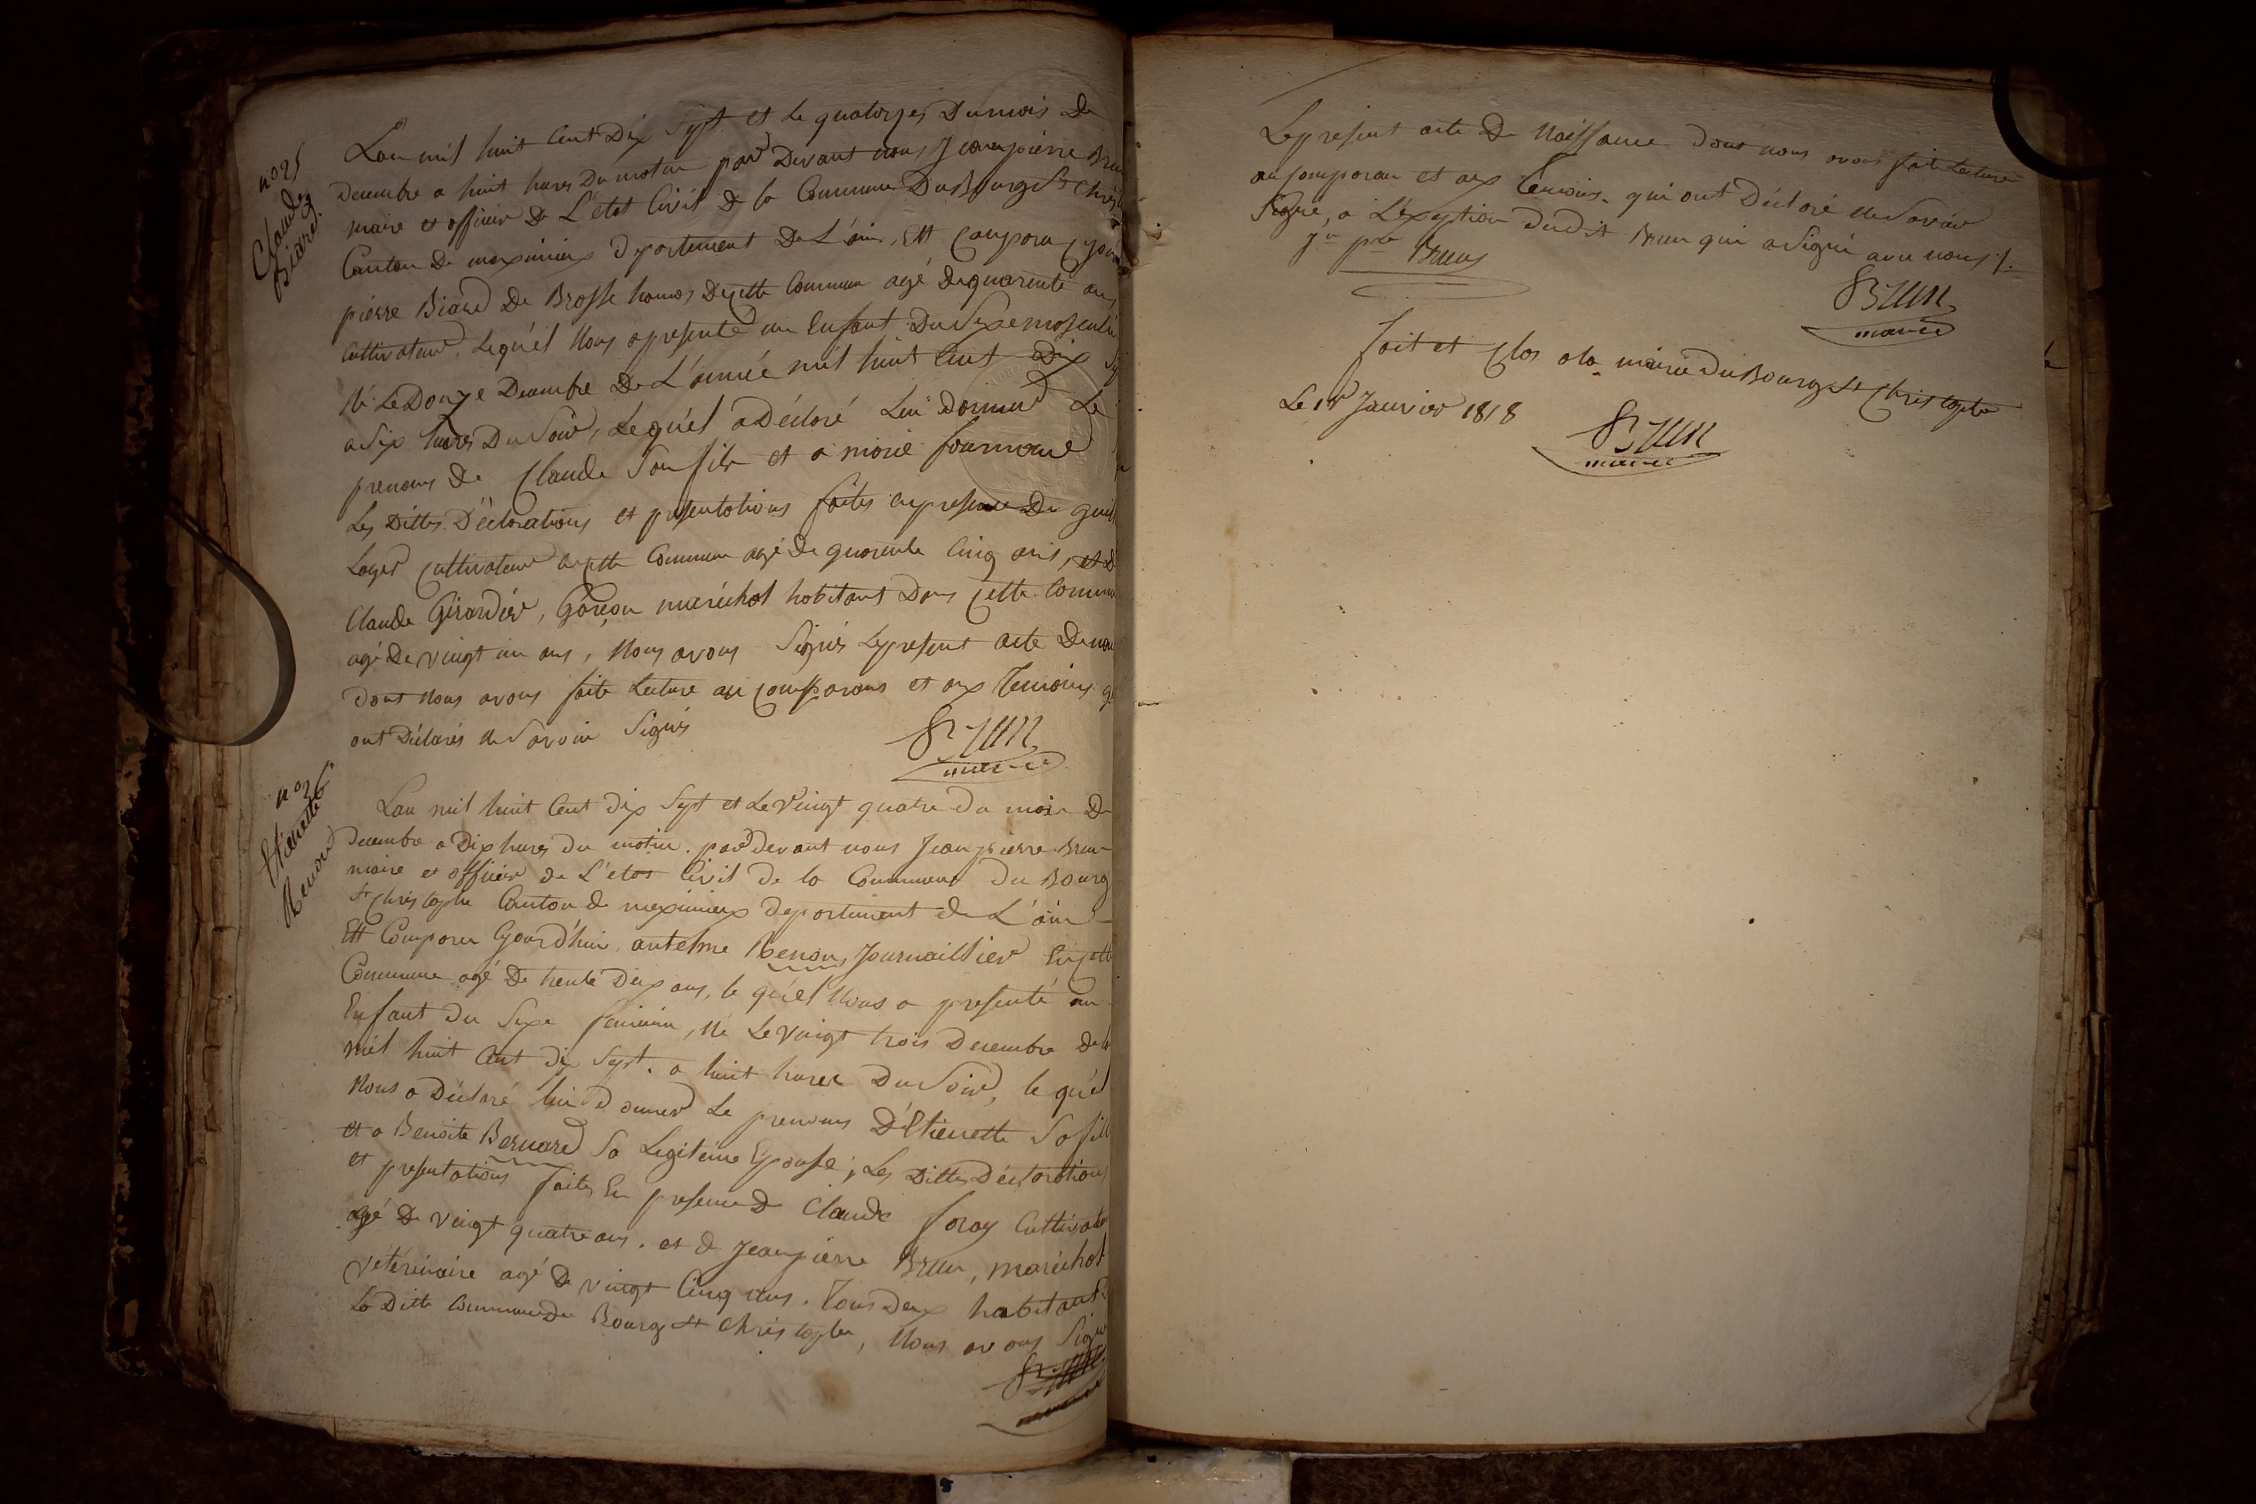 no 25
Claude
Biard
Lan mil huit Cent Dix Sept et Le quatorzes Du mois De
Decembre a huit hures Du matin par Devant nous Jeanpierre Brun
maire et officier De L'etat Civil de la Commune Du Bourg St Chris
Canton De maximieux departement De L'ain, Ett Comparu
pierre Biard De Brosse homes De cette Commune agé de quarente ans
Cultivateur. Lequ'el Nous a presenté un Enfant Du Sexe masculin
Né Le Douze Decembre De L'année mil huit Cent Dix
a Six hures Du Soir, Lequ'el a Déclaré Lui Donner Le
prenoms de Claude Son fils et a marie
Les Dittes Déclarations et presentations faites en presence De
Loyer Cultivateur de cette Commune agé De quarente Cinq ans, et De
Claude Girardier, Garçon maréchal habitant Dans Cette Commu
agé De vingt un ans, Nous avons Signés Le present acte De nai
Dont Nous avons faite Lecture au Comparans et aux Temoins qui
ont Déclarés ne Savoir Signés
Brun
maire
no 26
Etienette
Renoud
Lan mil huit Cent dix Sept et Le Vingt quatre du mois De
Decembre a Dix hures du matin. par devant nous Jean pierre Brun
maire et officier de L'etat Civil de la Commune du Bourg
St Christophe Canton de meximieux departement de L'ain
Ett Comparu Cyourd'hui antelme Renoux Journaillier En cette
Commune agé De trente Deux ans, le qu'el Nous a presenté un
Enfant du Sexe feminin, Né Le Vingt trois Decembre de la
mil huit Cent dix Sept. a huit hures Du Soir, le qu'el
Nous a Déclaré lui donner Le prenoms D'Etienette Sa fille
et a Benoite Bernard Sa Legitime Epouse; Les Dittes Déclarations
et presentations faites En presence De Claude foray Cultivateur
agé De Vingt quatre ans. et de Jeanpierre Brun, maréchal
Véterinaire agé De vingt Cinq ans. Tous Deux habitants
La Ditte Commune du Bourg St Christophe, Nous avons Signé
Brun
Le present acte De Naissance Dont nous avons fait Lecture
au Comparan et aux Temoins. qui ont Déclaré ne Savoir
Signé, a L'exception Dudit Brun qui a Signé avec nous /.
Jn pre Brun
Brun
maire
fait et Clos a la mairie du Bourg St Christophe
Le 1er Janvier 1818
Brun
maire